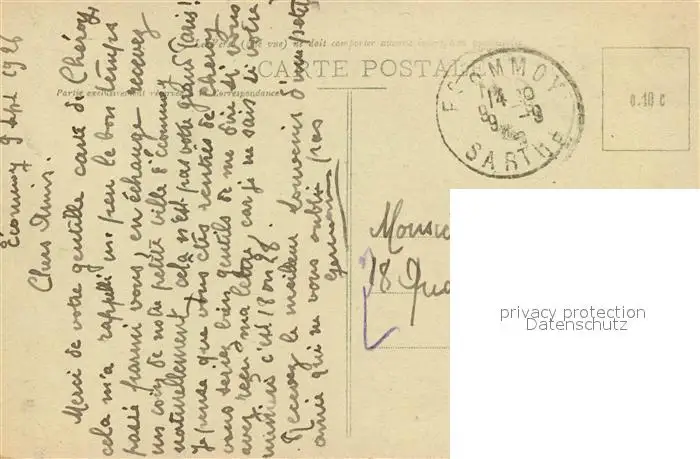 Écommoy 9 Sept 1926
Chers Amis.
Merci de votre gentille carte de Chéroy,
cela m'a rappelé un peu le bon temps
passé parmi vous, en échange recevez
un coin de notre petite ville d'Écommoy
naturellement cela n'est pas votre grand Paris!
Je pense que vous êtes rentrés de Cheroy
vous seriez bien gentils de me dire si vous
avez reçu ma lettre car je ne sais si votre
numéro c'est 18 ou 28.
Recevez le meilleur souvenir d'une petite
amie qui ne vous oublie pas
Germaine
(une vue) ne doit comporter aucune
CARTE POSTALE
Partie exclusivement réservée à la Correspondance
ECOMMOY
14
9-9
SARTHE
0.10 c
Monsie
18 Qua
privacy protection
Datenschutz